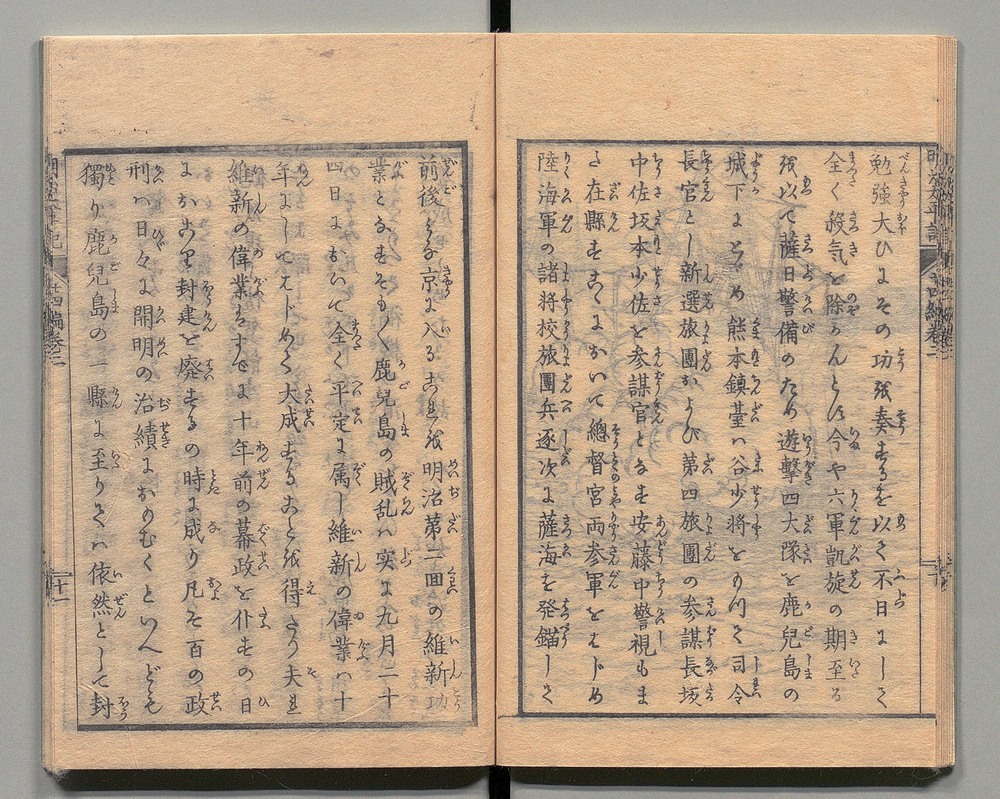 勉強大ひにその功を奏するを以て不日にして
全く殺気を除かんとす今や六軍凱旋の期至る
を以て薩日警備のため遊撃四大隊を鹿児島の
城下にとゞめ熊本鎮臺ハ谷少将をもつて司令
長官とし新選旅團および第四旅團の参謀長坂
中佐坂本少佐を参謀官となす安藤中警視もま
た在縣すこゝにおいて總督宮両参軍をはじめ
陸海軍の諸将校旅團兵逐次に薩海を発錨して
前後みな京に入るこれを明治第二回の維新功
業となすそも〱鹿児島の賊乱ハ実に九月二十
四日において全く平定に属し維新の偉業ハ十
年にしてはじめて大成することを得たり夫れ
維新の偉業たるすでに十年前の幕政を仆すの日
におこり封建を廃するの時に成り凡そ百の政
刑ハ日々に開明の治績におもむくといへども
獨り鹿児島の一縣に至りてハ依然として封
廿四編巻三
十一